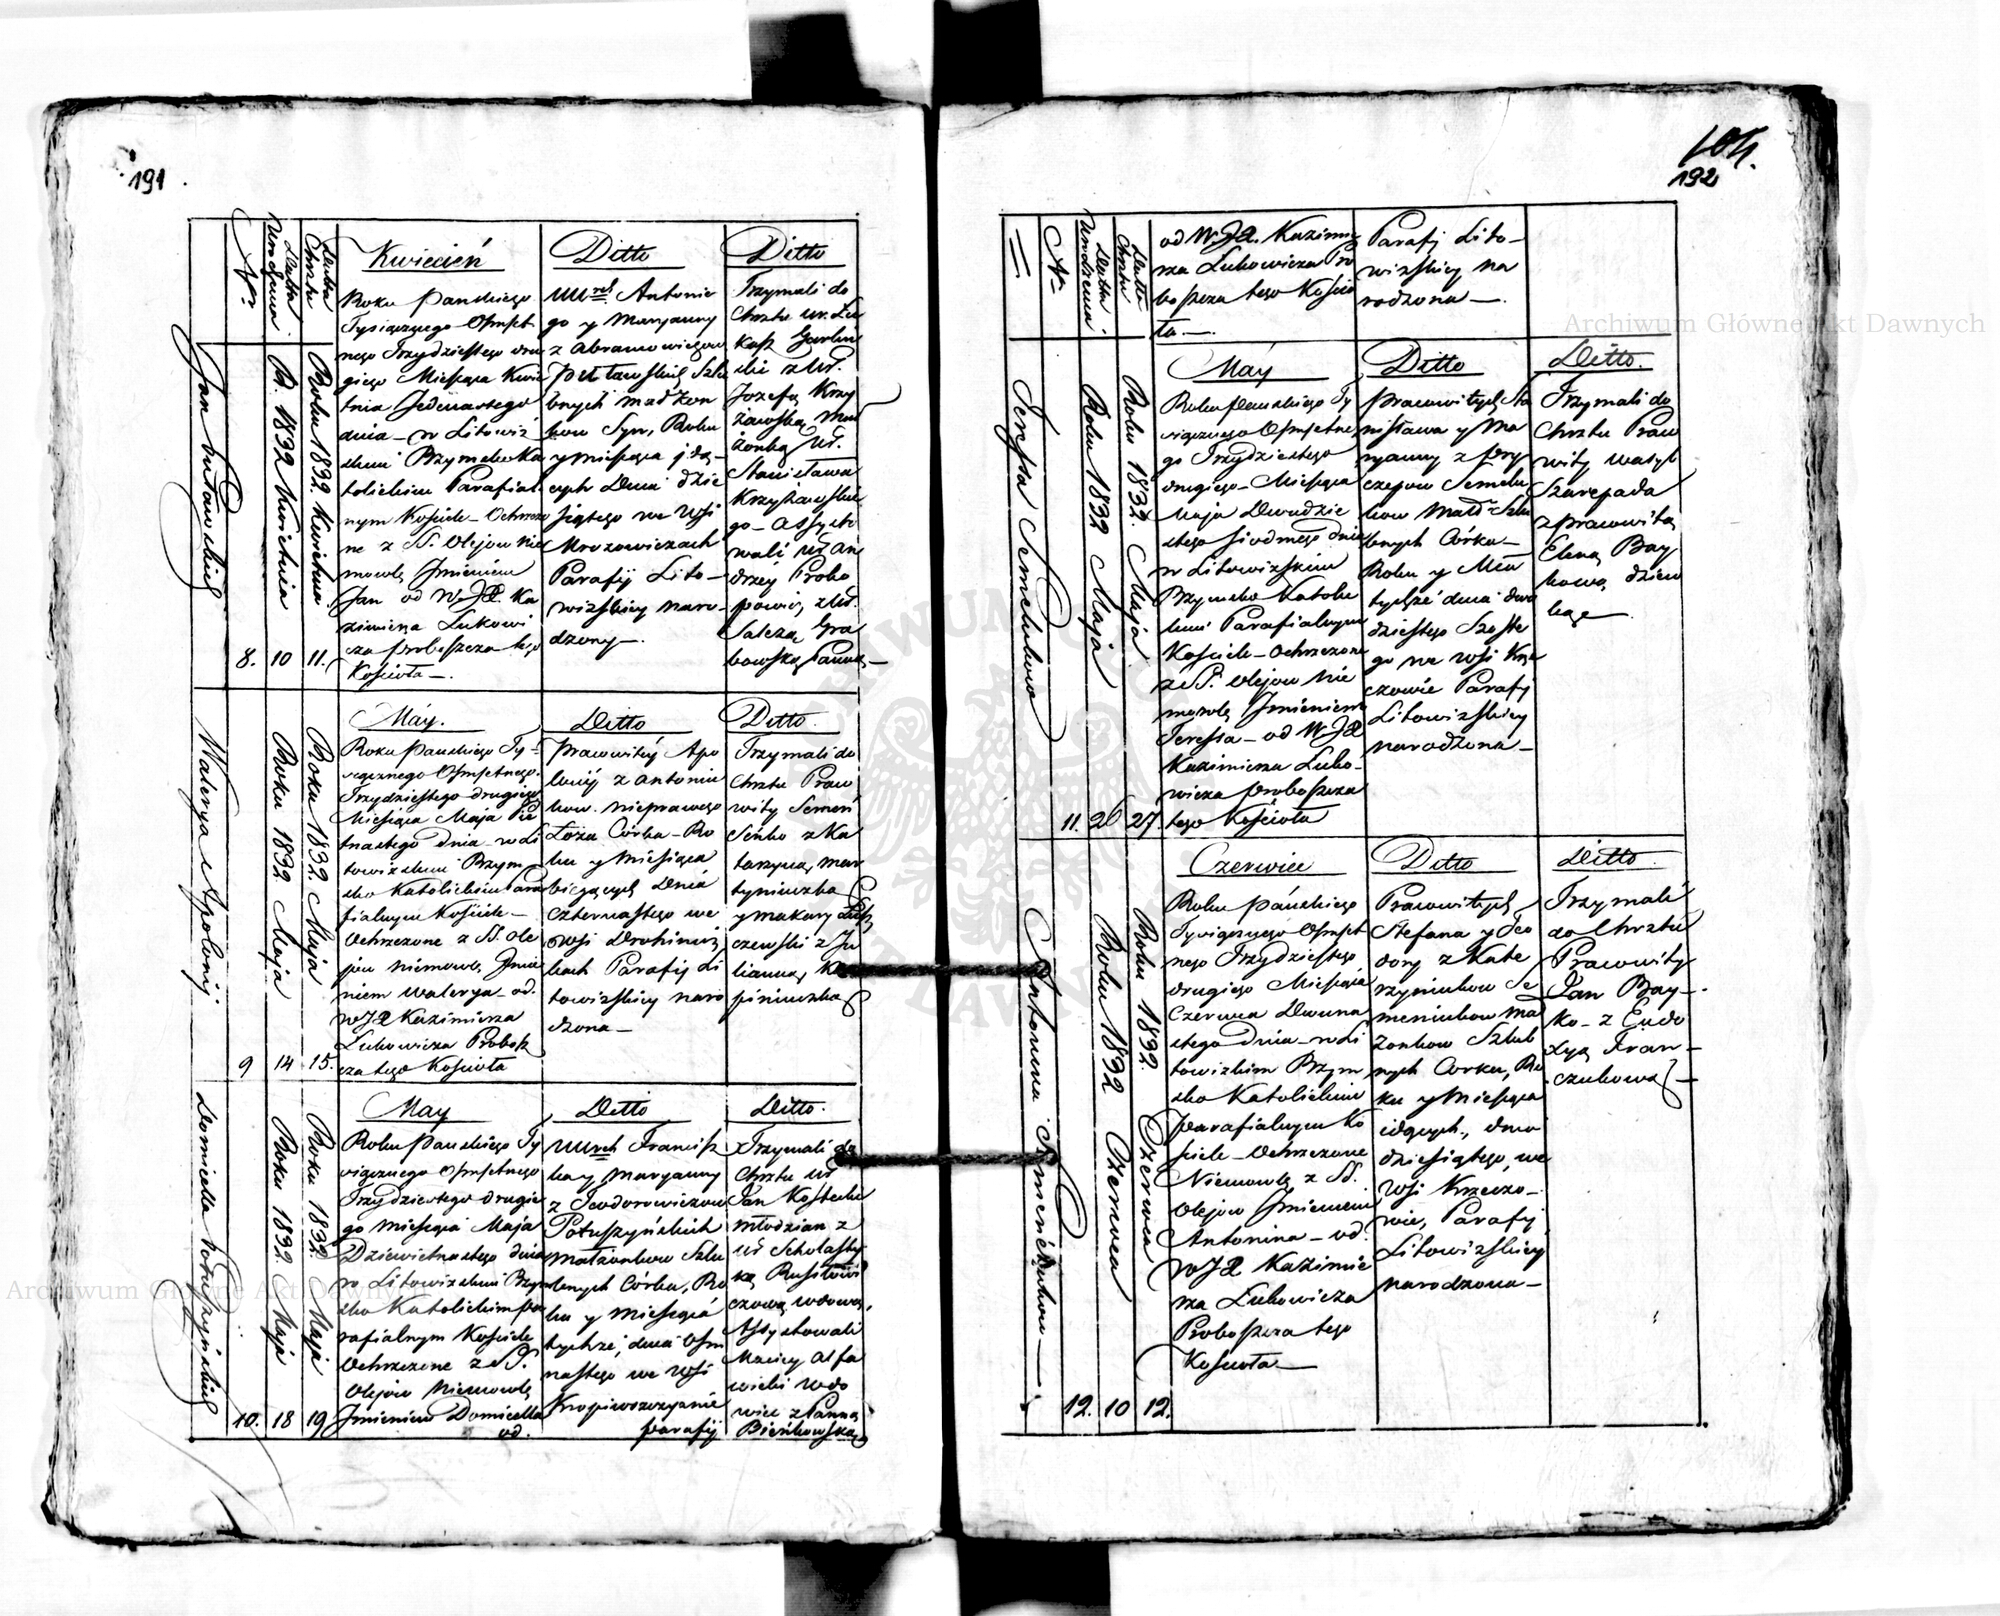 191
Nr
Datta Urodzenia
Datta Chrztu
Kwiecień
Ditto
Ditto
Jan
8.
R. 1832 Kwietnia 10
Roku 1832. Kwietnia 11.
Roku Pańskiego
Tysiącznego Ośmset-
nego Trzydziestego dru
giego Miesiąca Kwie
tnia Jedenastego
dnia – w Litowiż
skim Rzymsko Ka
tolickim Parafial
nym Kościele – Ochrzczo
ne z SS. Olejow Nie
mowlę Imieniem
Jan od W. JX. Ka
zimierza Lukowi
cza proboszcza tego
Kościoła –.
Antonie
go y Maryanny
z Abramowiczow
Szlu
bnych małżon
kow Syn, Roku
y miesiąca
cych Dnia dzie
siątego we Wsi
Mrozowiczach
Parafij Lito–
wizskiey naro–
dzony –.
Trzymali do
Chrztu ur. Łu
kasz
ski z Ur.
Jozefą Krzy
żawską
żonką Ur.
Stanisława
Krzyżawskie
go – Assysto
wali Ur. An
drzey Proko
powicz z Ur.
Salezą Gra
bowską Panną –
Waleryia Apolonij
9
Roku 1832. Maja 14
Roku 1832 Maja 15.
May.
Roku Pańskiego Ty–
siącznego Ośmsetnego
Trzydziestego drugiego
Miesiąca Maja Pię
tnastego dnia – w Li
towizskim Rzym
sko Katolickim Para
fialnym Kościele –
Ochrzczone z SS. Ole
jow niemowle Imie
niem Walerya – od.
W JX Kazimierza
Lukowicza Probosz
cza tego Kościoła
Ditto
Pracowitey Apo
lonij z Antoniu
kow. nieprawego
Łoża Córka – Ro
ku y Miesiąca
bieżących Dnia
czternastego we
wsi
kach Parafij Li
towizskiey naro
dzona –
Ditto.
Trzymali do
Chrztu Praco
wity Semen
Seńko z Ka
tarzyną Mar
tyniuszka
y makary
czewski z Ju
lianną
Domicella Potuszyńskich
10.
Roku 1832. Maja 18
Roku 1832 Maja 19
May
Roku Pańskiego Ty
siącznego Ośmsetnego
Trzydziestego drugie
go miesiąca Maja
Dziewietnastego dnia
w Litowizskim Rzym
sko Katolickim pa
rafialnym Kościele
Ochrzczone z SS.
Olejow Niemowlę
Imieniem Domicella
od.
Ditto
Francisz
ka y maryanny
z Teodorowiczow
Potuszyńskich
małżonkow Szlu
bnych Córka, Ro
ku y miesiąca
tychże, dnia Ośm
nastego we Wsi
Parafij
Ditto.
Trzymali do
Chrztu Ur
Jan Kostecki
młodzian z
Ur Scholasty
ką Rusiłowi
czową wdową,
Assystowali
Maciey Alfa
wicki wdo
wiec z Panną
Bieńkowską
104.
192
Nr
Datta Urodzenia
Datta Chrztu
od W. JX. Kazimie
rza Lukowicza Pro
boszcza tego Kościo
ła –.
Parafij Lito–
wizskiey na
rodzona –.
Teressa Semeluków
11.
Roku 1832 Maja 26
Roku 1832. Maja 27.
May
Roku Pańskiego Ty
siącznego Ośmsetne
go Trzydziestego
drugiego – Miesiąca
Maja Dwudzie
stego siodmego dnia
w Litowizskim
Rzymsko Katolic
kim Parafialnym
Kościele – Ochrzczone
z SS. Olejow Nie
mowlę Imieniem
Teressa – od W. JX
Kazimierza Luko–
wicza proboszcza
tego Kościoła
Ditto
Pracowitych Sta
nisława y Ma
ryanny z
czepow Semelu
kow Małż: Szlu
bnych Córka –
Roku y Mca
tychże dnia dwu
dziestego Szoste
go we wsi Krze
czowie Parafij
Litowizskiey
narodzona –
Ditto.
Trzymali do
Chrztu Praco
wity Wasyl
Szarepada
z pracowitą
Eleną Bay
kową
Antonina Semeniuków –
12.
Roku 1832 Czerwca 10
Roku 1832. Czerwca 12.
Czerwiec
Roku Pańskiego
Tysiącznego Ośmset
nego Trzydziestego
drugiego Miesiąca
Czerwca Dwuna
stego Dnia – w Li
towizkim Rzym
sko Katolickim
parafialnym Ko
ściele – Ochrzczone
Niemowlę z SS.
Olejow Imieniem
Antonina – od.
W JX Kazimie
rza Lukowicza
Proboszcza tego
Kościoła –
Ditto
Pracowitych
Stefana y Teo
dory z Kate
ryniukow Se
meniukow Mał
żonkow Szlub
nych Corka, Ro
ku y Miesiąca
idących, dnia
dziesiątego, we
Wsi Krzeczo–
wie, Parafij
Litowizskiey
narodzona –
Ditto
Trzymali
do Chrztu
Pracowity
Jan Bay–
ko – z Eudo
kyą Fran–
czukową –
Archiwum Główne Akt Dawnych
Archiwum Główne Akt Dawnych